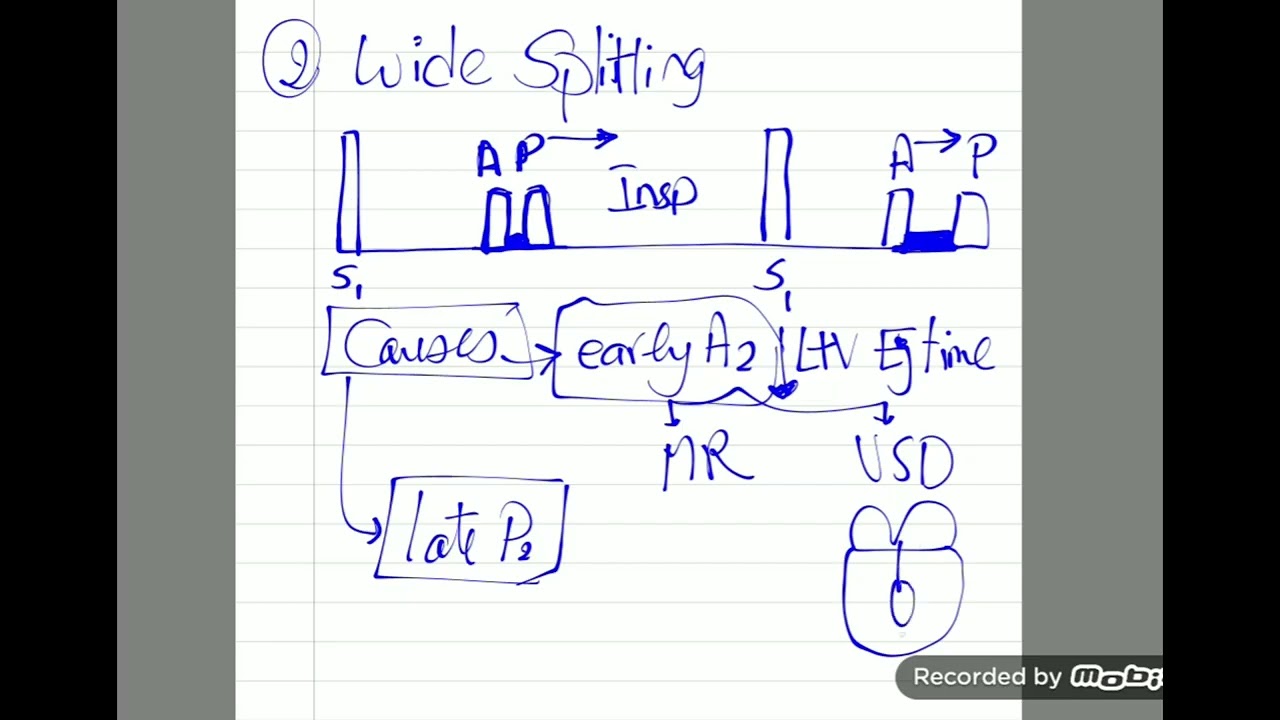 2 Wide Splitting
A P → A → P
Insp
S1 S1
Causes → early A2 ↓ LV Ej time
MR VSD
late P2
Recorded by Mobi